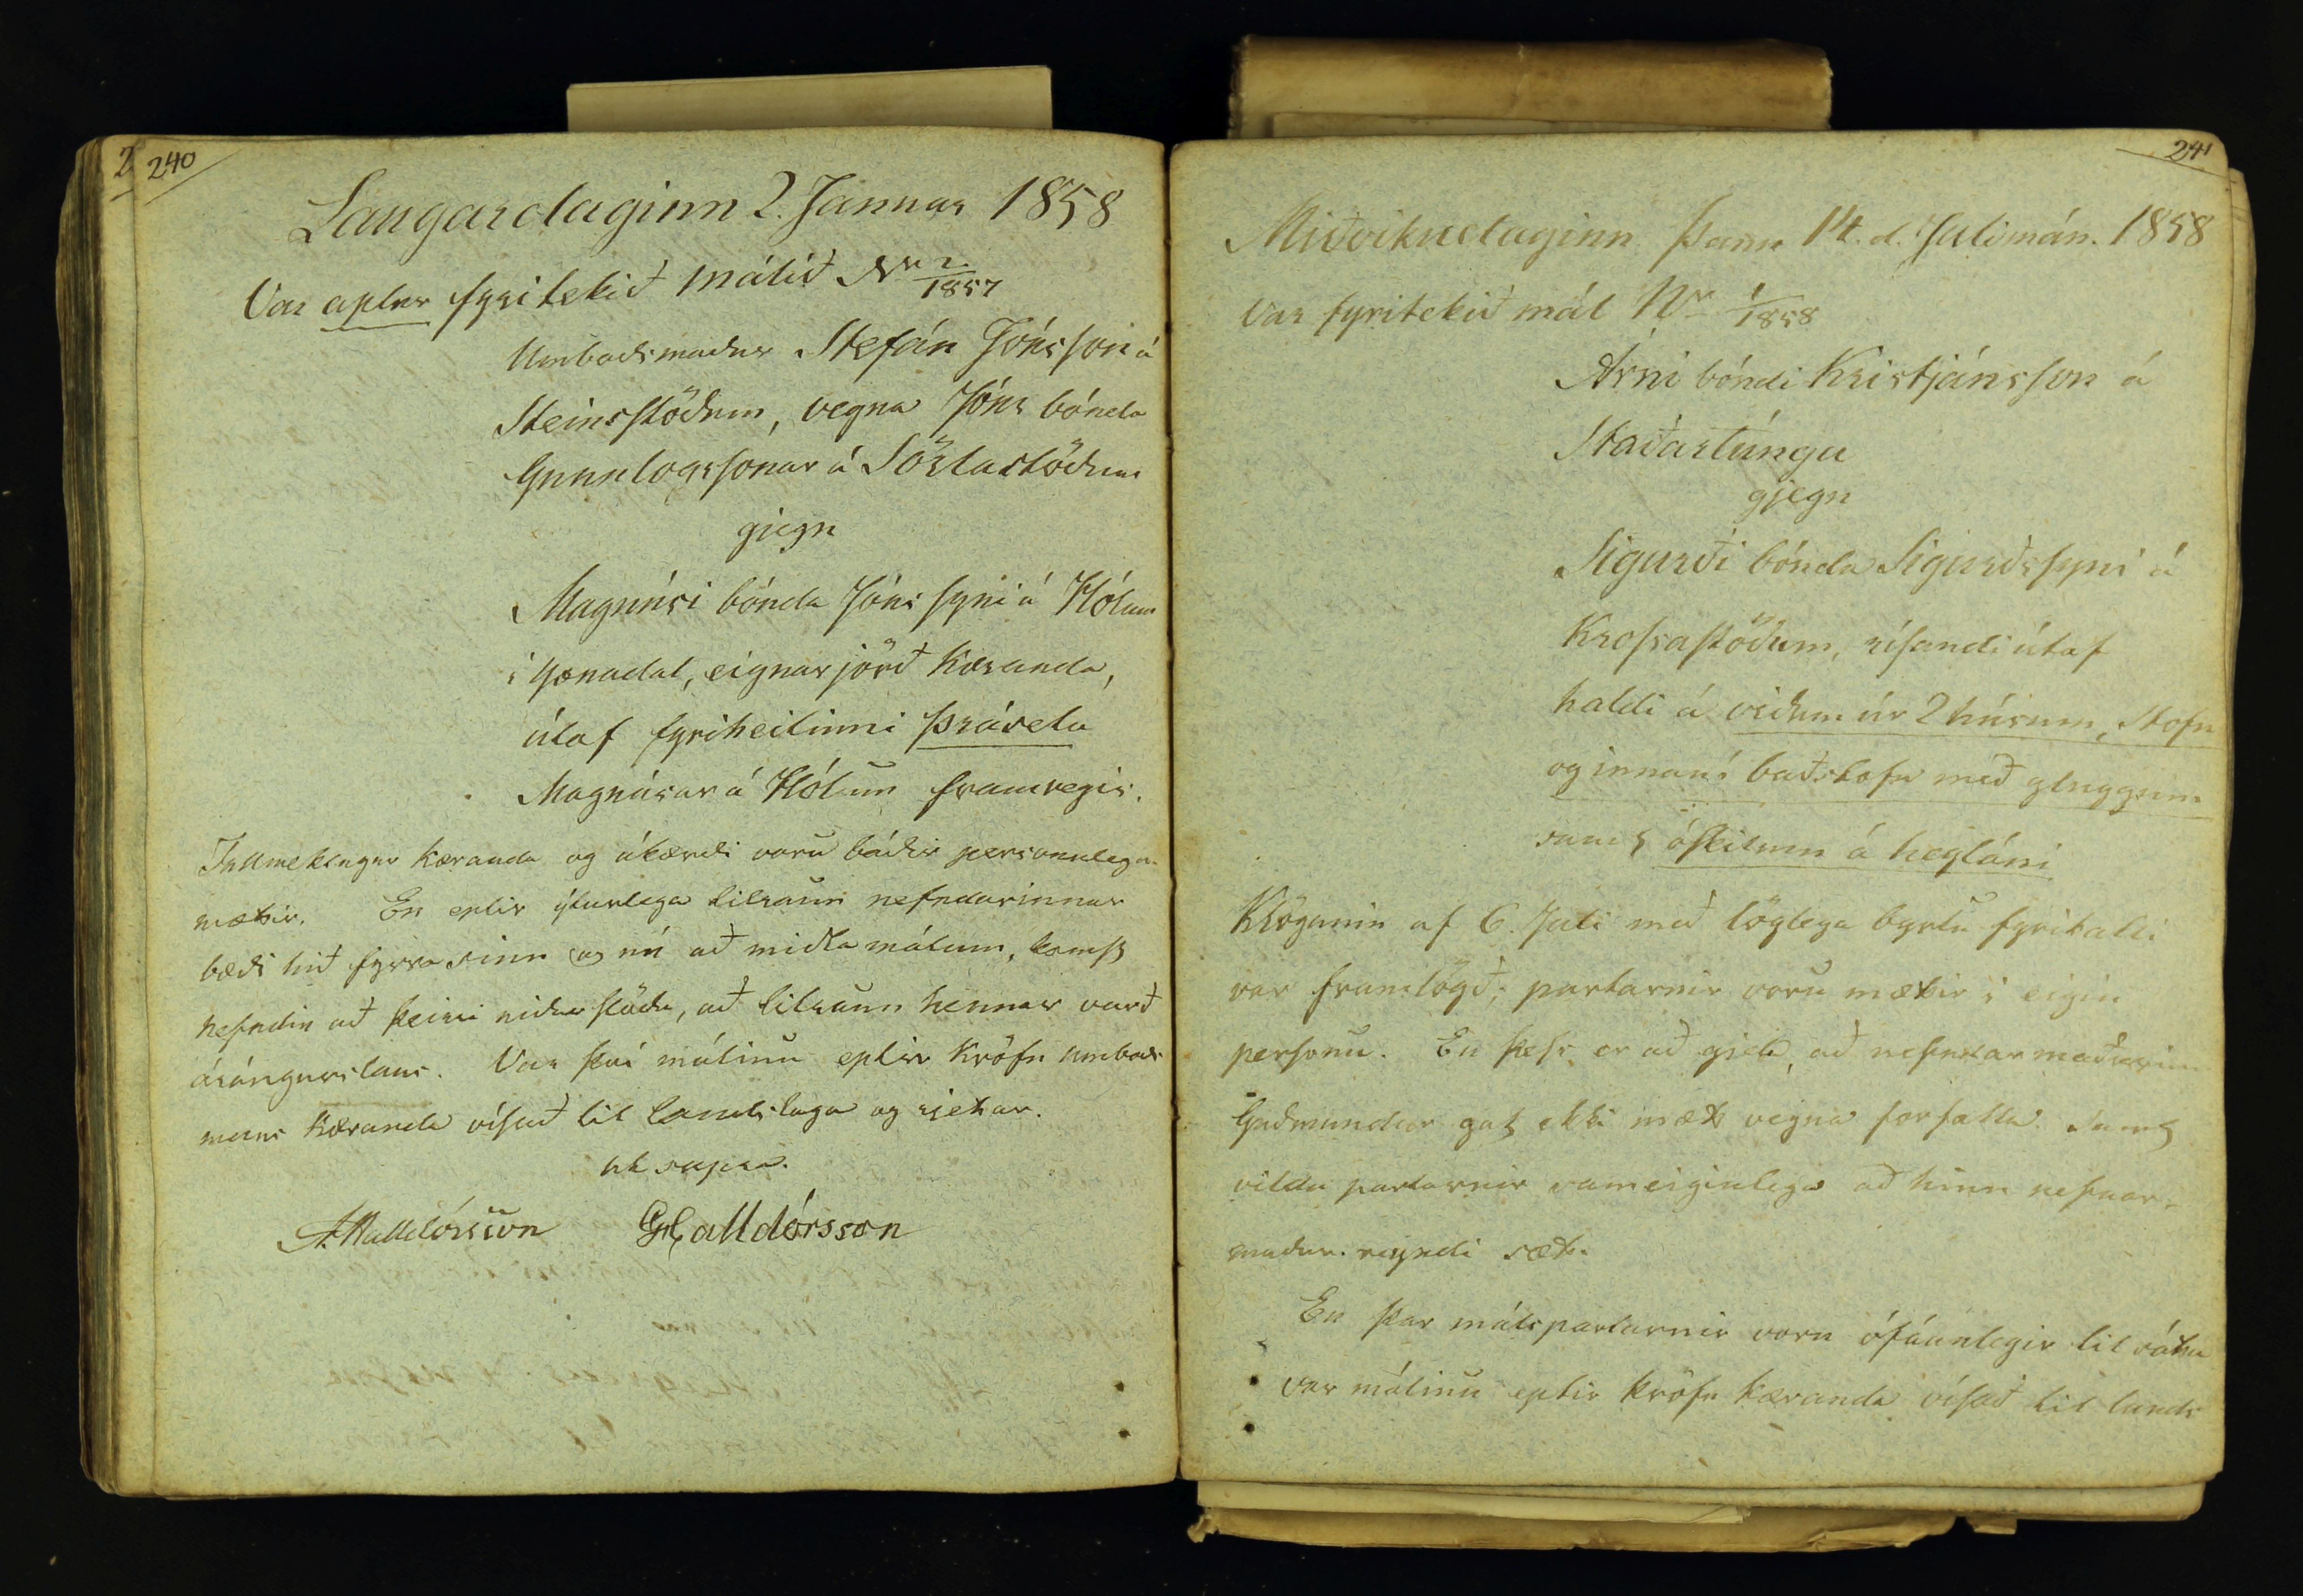 240
Laugardaginn 2. Januar 1858
Var aptur fyritekið málið Nr 2/1857
Umboðsmaður Stefán Jónsson á
Steinsstöðum, vegna Jóns bónda
Gunnlogssonar á Sörlastöðum
gjegn
Magnúsi bónda Jónssyni á Hólum
í Yxnadal, eignarjörð Kæranda,
útaf fyriheitinni þrásetu
Magnúsar á Hólum framvegis.
Fullmektugur Kæranda og ákærði voru báðir personulega
mættir. En eptir ýturlega tilraun nefndarinnar
bæði hið fyrra sinn og nú að miðla málum, komst
nefndin að þeirri niðurstöðu, að tilraun hennar varð
árángurslaus. Var því málinu eptir kröfu umboðs
manns Kæranda vísað til landslaga og rjettar.
ut supra.
A. Halldórsson GHalldórsson
241
Miðvikudaginn þann 14. d. Julimán. 1858
Var fyritekið mál Nr 1/1858
Árni bóndi Kristjánsson á
Staðartúngu
gjegn
Sigurði bónda Sigurðssyni á
Krossastöðum, rísandi útaf
haldi á viðum úr 2 húsum, Stofu
og innaní baðstofu með gluggum
samt óskilum á heyláni
Klögunin af 6. Juli með löglega byrtu fyrikalli
var framlögð; partarnir voru mættir í eigin
personu. En þess er að gjeta, að nefndarmaðurinn
Guðmundur gat ekki mætt vegna forfalla. Samt
vildu partarnir sameiginlega að hinn nefndar-
maður reyndi sætt.
En þar málspartarnir voru ófáanlegir til sátta
var málinu eptir kröfu kæranda vísað til lands